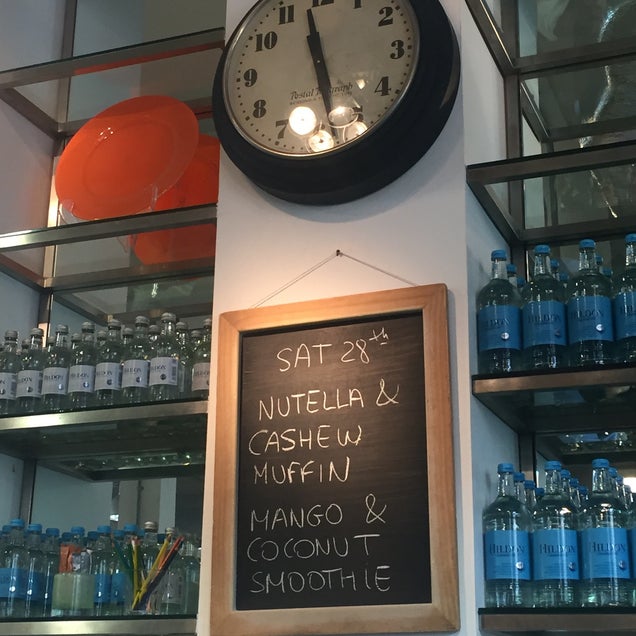 11
10
9
8
7
12
1
2
3
4
SAT 28th
NUTELLA &
CASHEW
MUFFIN
MANGO &
COCONUT
SMOOTHIE
HILDON
HILDON
HILDON
HILDON